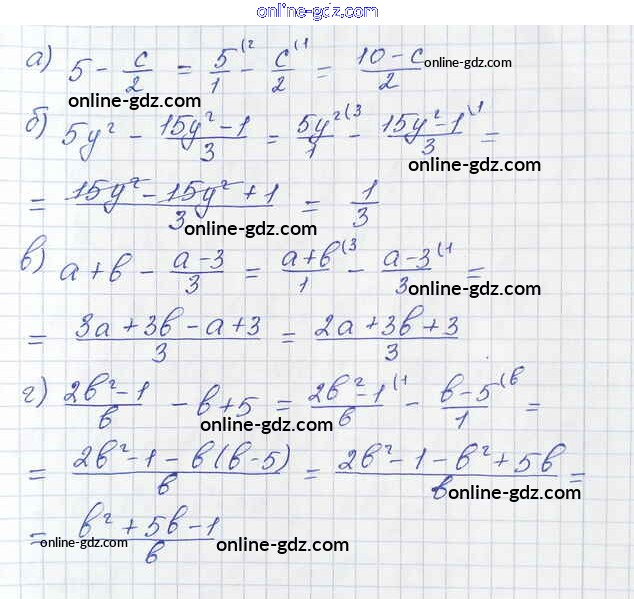 online-gdz.com
а) 5 - c/2 = 5/1 (2 - c/2 (1 = (10-c)/2 online-gdz.com
online-gdz.com
б) 5y² - (15y²-1)/3 = 5y²/1 (3 - (15y²-1)/3 (1 =
online-gdz.com
= (15y²-15y²+1)/3 = 1/3
online-gdz.com
в) a+b - (a-3)/3 = (a+b)/1 (3 - (a-3)/3 (1 =
online-gdz.com
= (3a+3b-a+3)/3 = (2a+3b+3)/3
г) (2b²-1)/b - b+5 = (2b²-1)/b (1 - (b-5)/1 (b =
online-gdz.com
= (2b²-1-b(b-5))/b = (2b²-1-b²+5b)/b =
online-gdz.com
= (b²+5b-1)/b
online-gdz.com online-gdz.com